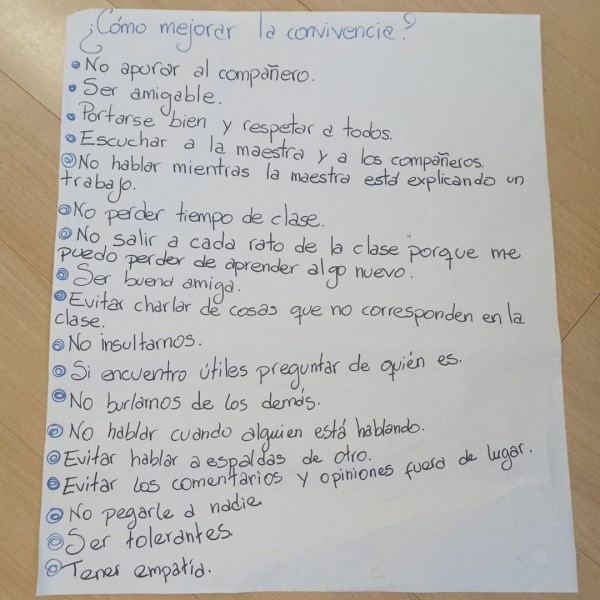 ¿Cómo mejorar la convivencia?
No apurar al compañero.
Ser amigable.
Portarse bien y respetar a todos.
Escuchar a la maestra y a los compañeros.
No hablar mientras la maestra está explicando un
trabajo.
No perder tiempo de clase.
No salir a cada rato de la clase porque me
puedo perder de aprender algo nuevo.
Ser buena amiga.
Evitar charlar de cosas que no corresponden en la
clase.
No insultarnos.
Si encuentro útiles preguntar de quién es.
No burlarnos de los demás.
No hablar cuando alguien está hablando.
Evitar hablar a espaldas de otro.
Evitar los comentarios y opiniones fuera de lugar.
No pegarle a nadie
Ser tolerantes.
Tener empatía.